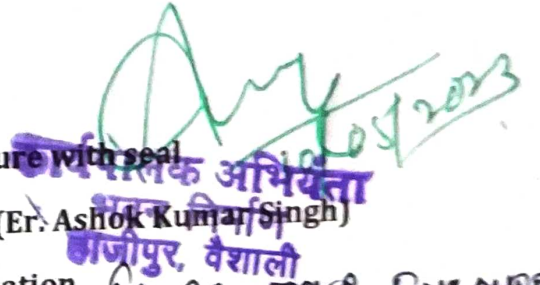 05/2023
ure with seal
कार्यपालक अभियंता
(Er. Ashok Kumar Singh)
भवन निर्माण
हाजीपुर, वैशाली
ation